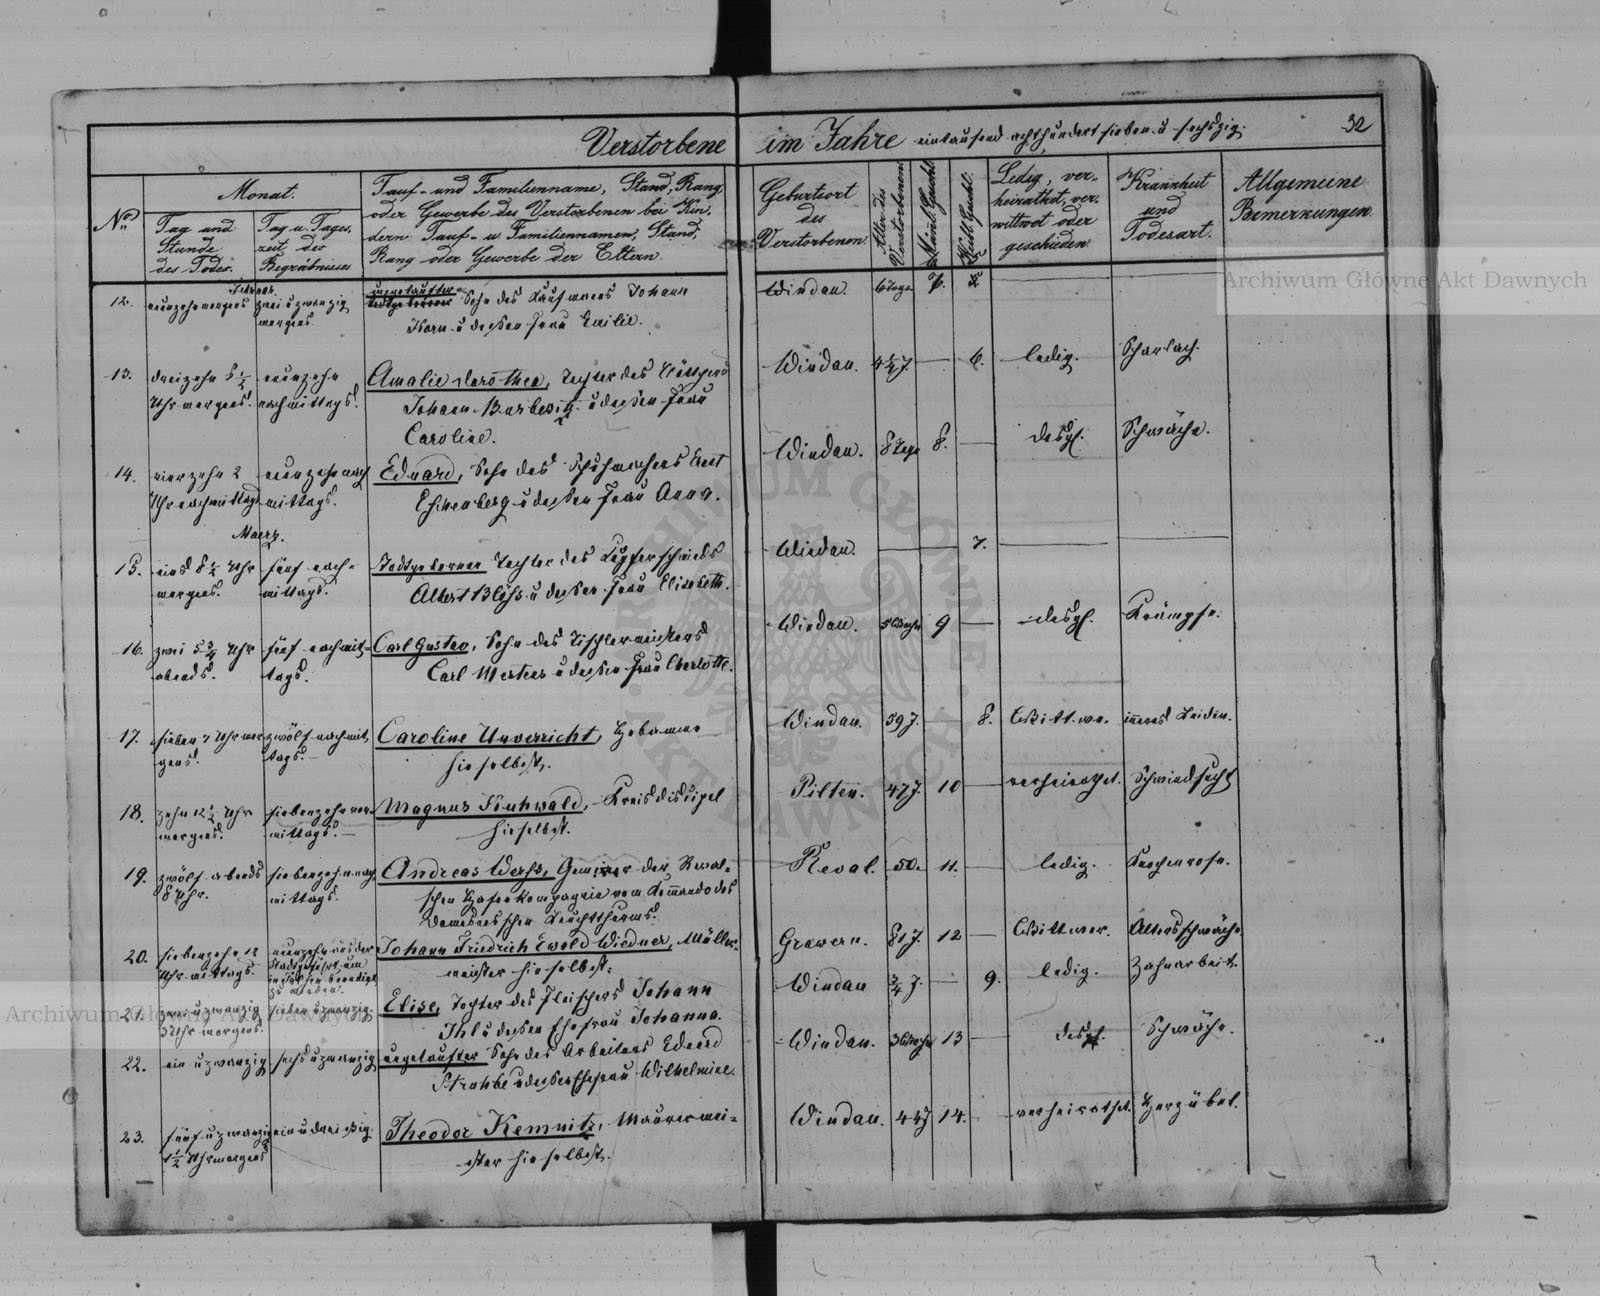 Verstorbene im Jahre eintausend achthundert sieben u sechszig.
32
No.
Monat.
Tag und Stunde des Todes.
Tag u. Tageszeit des Begräbnisses
Tauf- und Familienname, Stand, Rang
oder Gewerbe des Verstorbenen bei Kin-
dern Tauf- u Familiennamen, Stand,
Rang oder Gewerbe der Eltern.
Geburtsort des Verstorbenen.
Alter des Verstorbenen
Männl. Geschl.
Weibl. Geschl.
Ledig, ver-
heirathet, ver-
wittwet oder
geschieden
Krankheit und Todesart.
Allgemeine Bemerkungen.
12. neunzehn morgens zwei u zwanzig morgens.
ungetaufter Sohn des Kaufmanns Johann
Korn u dessen Frau Emilie.
Windau. 6 Tage 7.
13. dreizehn 5 1/2 Uhr morgens. neunzehn nachmittags.
Amalie Dorothea, Tochter des Böttgers
Johann u dessen Frau
Caroline.
Windau. 4 1/2 J. — 6. ledig. Scharlach.
14. vierzehn 2 Uhr nachmittags neunzehn nachmittags.
Eduard, Sohn des Schuhmachers Ernst
Eschenberg u dessen Frau Anna.
Windau. 8 Tage 8. — desgl. Schwäche.
Maerz.
15. eins 8 1/2 Uhr morgens. fünf nachmittags.
Todtgeborene Tochter des Kupferschmieds
Albert Bloss u dessen Frau Elisabeth.
Windau. — 7. —
16. zwei 5 3/4 Uhr abends. fünf nachmittags.
Carl Gustav, Sohn des Tischlermeisters
Carl Mertens u dessen Frau Charlotte.
Windau. 9 — desgl. Krämpfe.
17. sieben 7 Uhr morgens. zwölf nachmittags.
Caroline Unverricht, Hebamme
hieselbst.
Windau. 59 J. — 8. Wittwe. inneres Leiden.
18. zehn 12 1/2 Uhr morgens. siebenzehn vormittags.
Magnus Kuhwald, Kreisdiscipel
hieselbst.
Pilten. 47 J. 10 — verheirathet. Schwindsucht
19. zwölf abends 8 Uhr. siebenzehn nachmittags.
Andreas Gemeiner der Reval-
schen Hafenkompagnie vom Kommando des
Domesneesschen Leuchtthurms.
Reval. 50. 11. — ledig. Knochenrose.
20. siebenzehn 12 Uhr mittags.
Johann Friedrich Ewald Wiedner, Müller-
meister hieselbst.
81 J. 12 — Wittwer. Altersschwäche
21. zwei u zwanzig 3 Uhr morgens. sieben u zwanzig.
Elise, Tochter des Fleischers Johann
Ihl u dessen Ehefrau Johanna.
Windau 3/4 J. — 9. ledig. Zahnarbeit.
22. ein u zwanzig sechs u zwanzig
ungetaufter Sohn des Arbeiters Eduard
Strauhbe u dessen Ehefrau Wilhelmine.
Windau. 3 Wochen 13 — desgl. Schwäche.
23. fünf u zwanzig 1 1/2 Uhr morgens ein u dreissig.
Theodor Kemnitz, Maurermei-
ster hieselbst.
Windau. 44 J 14. — verheirathet. Herzübel.
Archiwum Główne Akt Dawnych
Archiwum Główne Akt Dawnych
ARCHIWUM GŁÓWNE AKT DAWNYCH